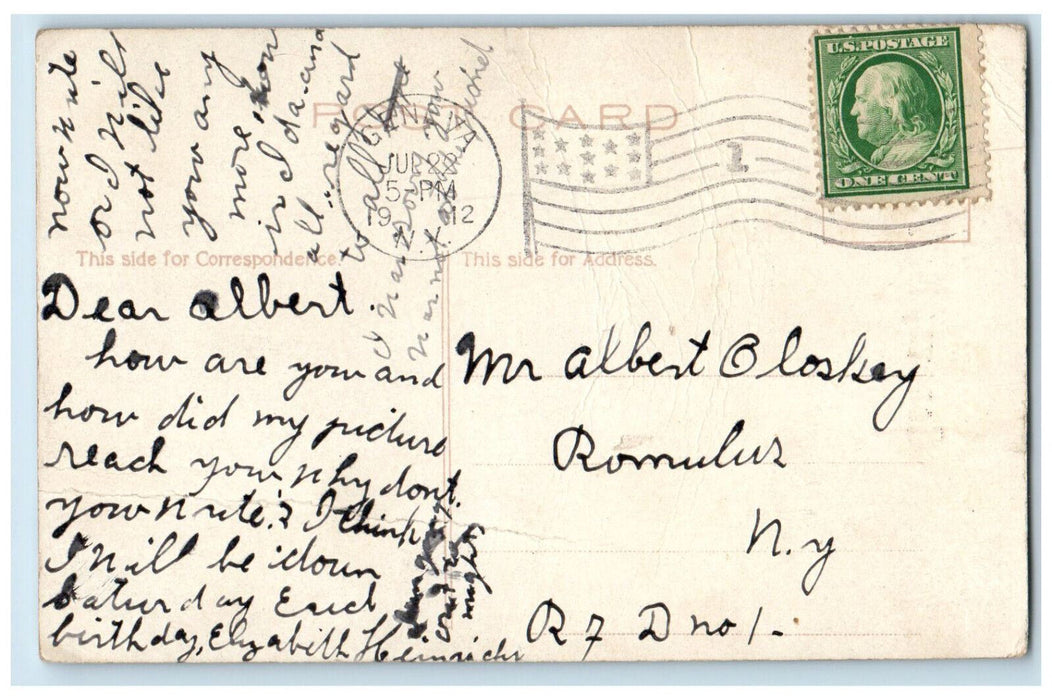 POST CARD
U.S. POSTAGE
ONE CENT
GENEVA
JUN 28
5-PM
1912
1
This side for Correspondence.
This side for Address.
Dear albert.
how are you and
how did my picture
reach you why dont
you write? I think
I will be down
Saturday
birthday, Elizabeth Heinrichs
now write
or I will
not like
you any
more, how
is Ida and
all. regard
to all
Mr Albert Oloskey
Romulus
N.y
R F D no 1-